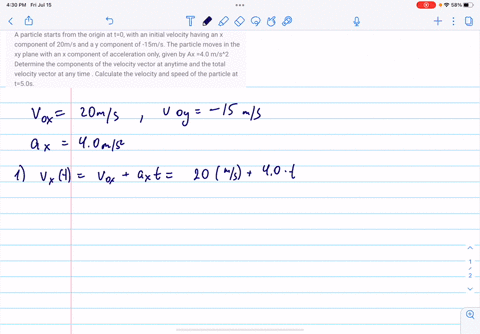 4:30 PM Fri Jul 15
58%
A particle starts from the origin at t=0, with an initial velocity having an x
component of 20m/s and a y component of -15m/s. The particle moves in the
xy plane with an x component of acceleration only, given by Ax =4.0 m/s^2
Determine the components of the velocity vector at anytime and the total
velocity vector at any time . Calculate the velocity and speed of the particle at
t=5.0s.
v0x = 20m/s , v0y = -15 m/s
ax = 4.0m/s²
1) vx(t) = v0x + axt = 20 (m/s) + 4.0·t
1
2